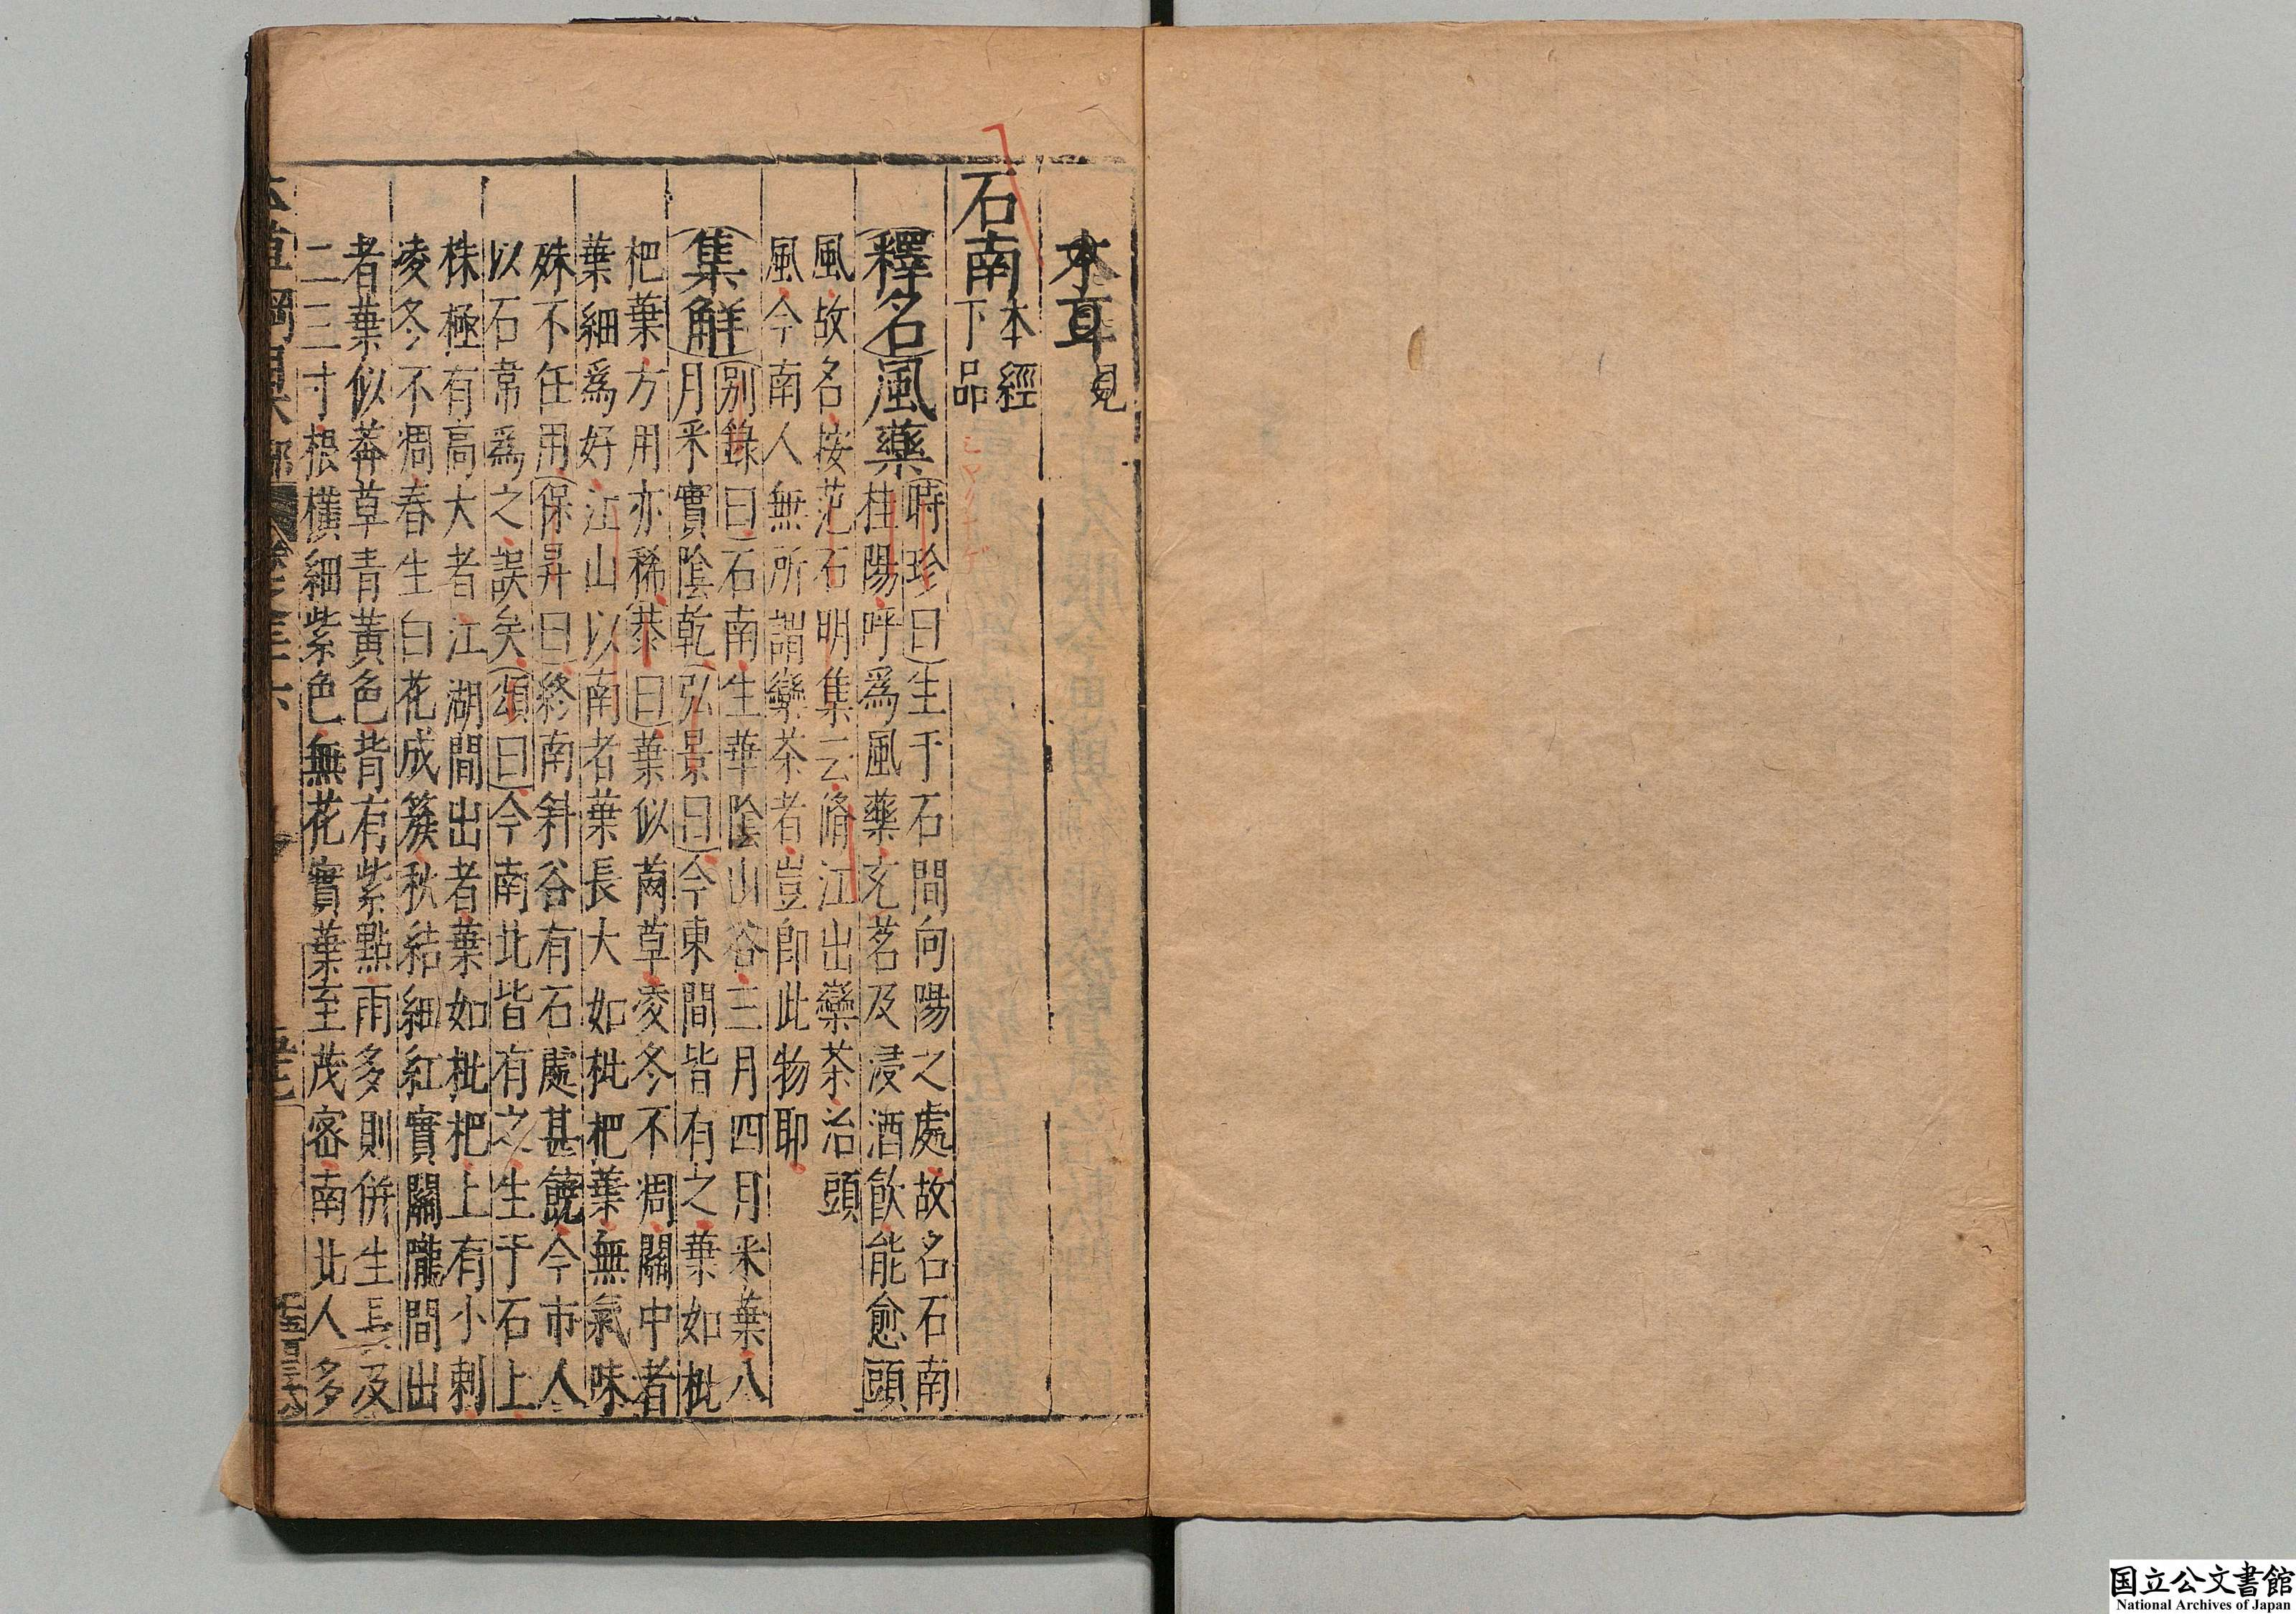 木耳見
石南本經下品
釋名風藥時珍曰生于石間向陽之處故名石南
桂陽呼爲風藥充茗及浸酒飲能愈頭
風故名按范石明集云脩江出欒茶治頭
風今南人無所謂欒茶者豈卽此物耶
集解別錄曰石南生華陰山谷三月四月采葉八
月采實陰乾弘景曰今東間皆有之葉如枇
杷葉方用亦稀恭曰葉似䓢草凌冬不凋關中者
葉細爲好江山以南者葉長大如枇杷葉無氣味
殊不任用保昇曰終南斜谷有石處甚饒今市人
以石韋爲之誤矣頌曰今南北皆有之生于石上
株極有高大者江湖間出者葉如枇杷上有小刺
凌冬不凋春生白花成簇秋結細紅實關隴間出
者葉似莽草青黃色背有紫點雨多則併生長及
二三寸根橫細紫色無花實葉至茂密南北人多
本草綱目木部 卷之三十六
国立公文書館
National Archives of Japan